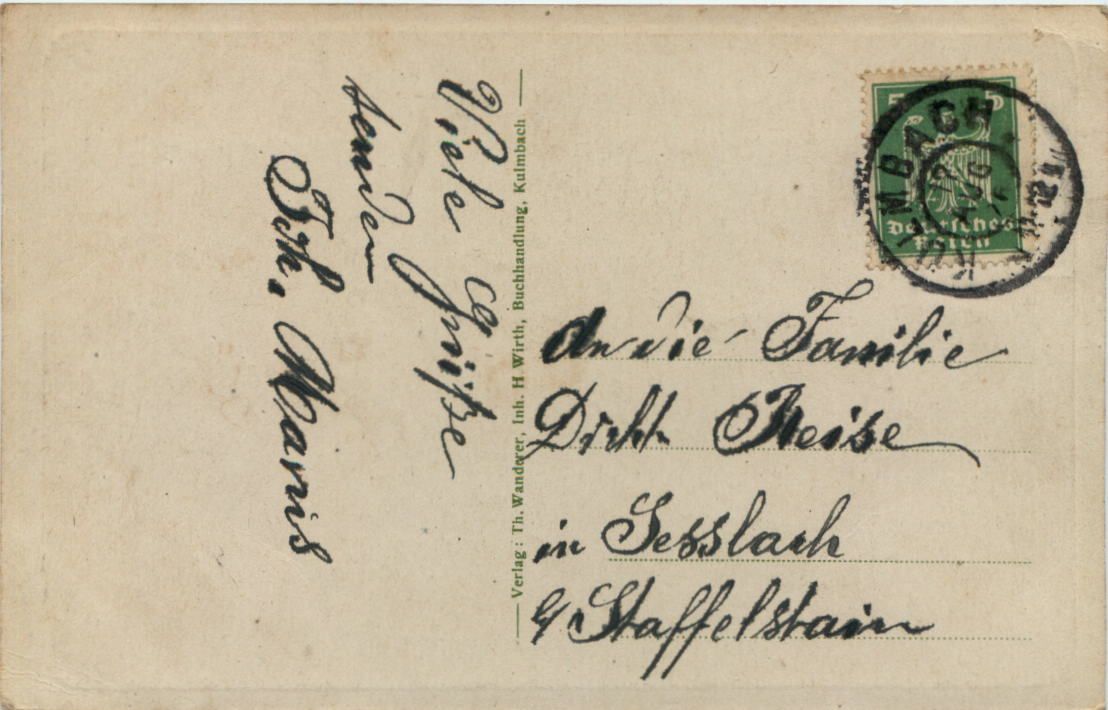 Viele Grüße
senden
Fch. Maris
Verlag: Th. Wanderer, Inh. H. Wirth, Buchhandlung, Kulmbach
5 5
Deutsches
Reich
KULMBACH
12 AUG
An die Familie
Reise
in Sesslach
Staffelstain